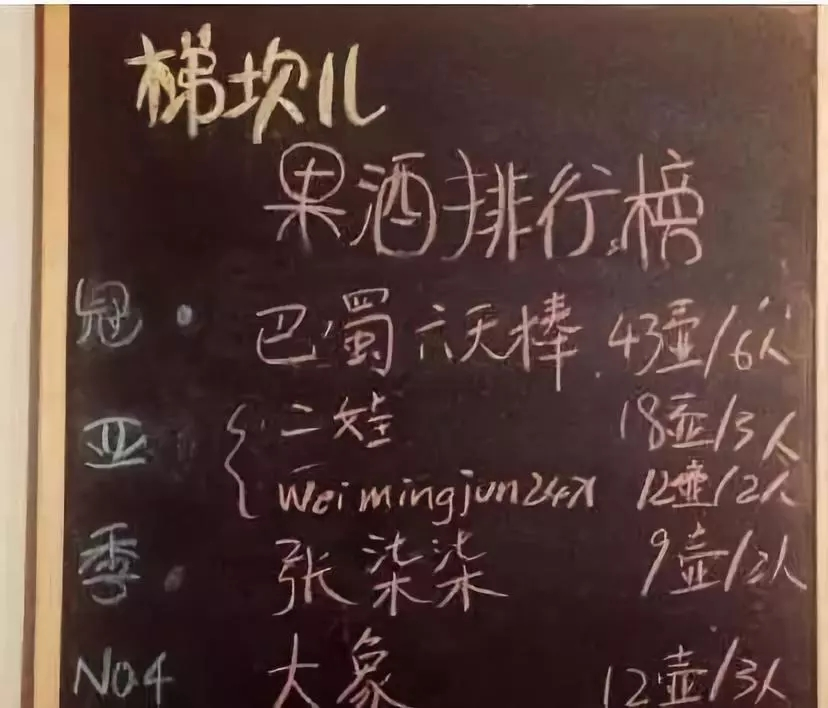 梯坎儿
果酒排行榜
冠 · 巴蜀六天棒 43壶/6人
亚 二娃 18壶/3人
weimingjun24x 12壶/2人
季 · 张柒柒 9壶/2人
No4 大象 12壶/3人